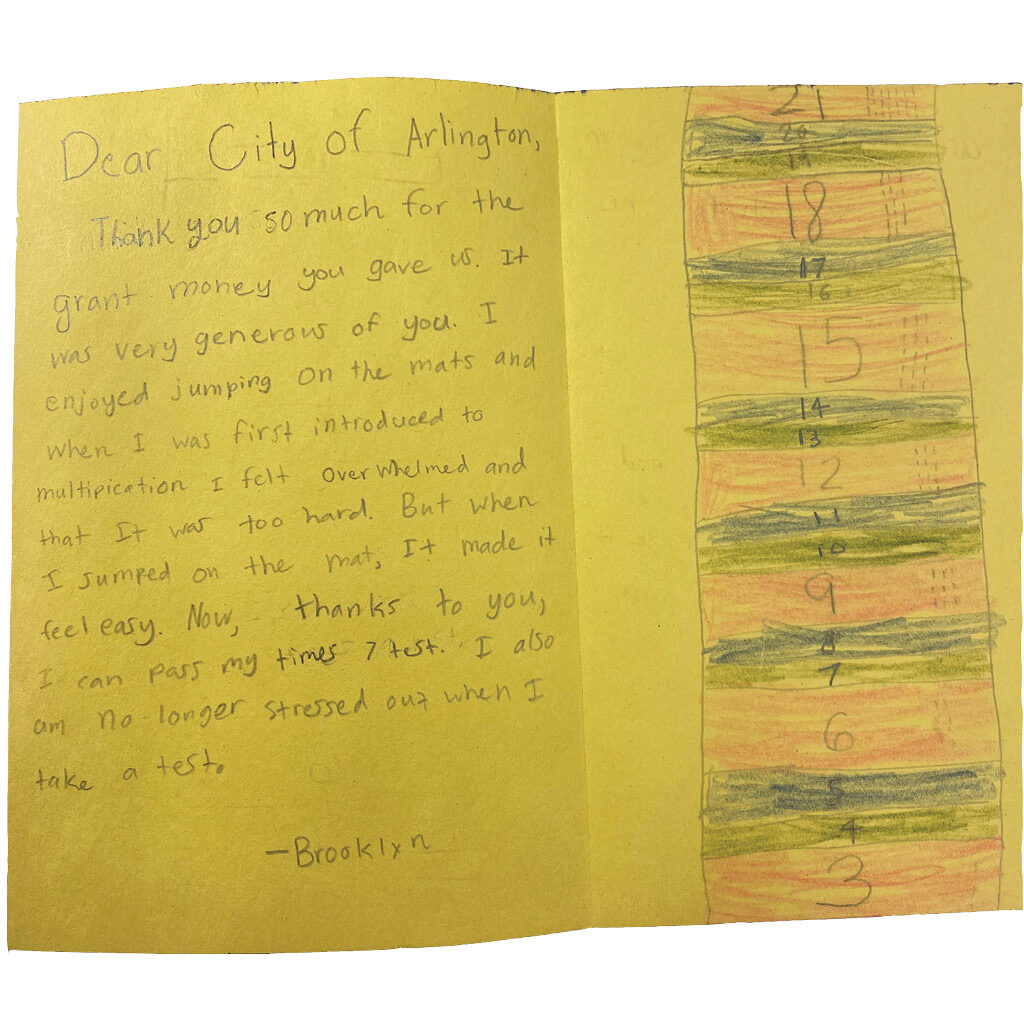 Dear City of Arlington,
Thank you so much for the
grant money you gave us. It
was very generous of you. I
enjoyed jumping on the mats and
when I was first introduced to
multipication I felt overwhelmed and
that It was too hard. But when
I jumped on the mat, It made it
feel easy. Now, thanks to you,
I can pass my times 7 test. I also
am no longer stressed out when I
take a test.
-Brooklyn
21
20
19
18
17
16
15
14
13
12
11
10
9
8
7
6
5
4
3